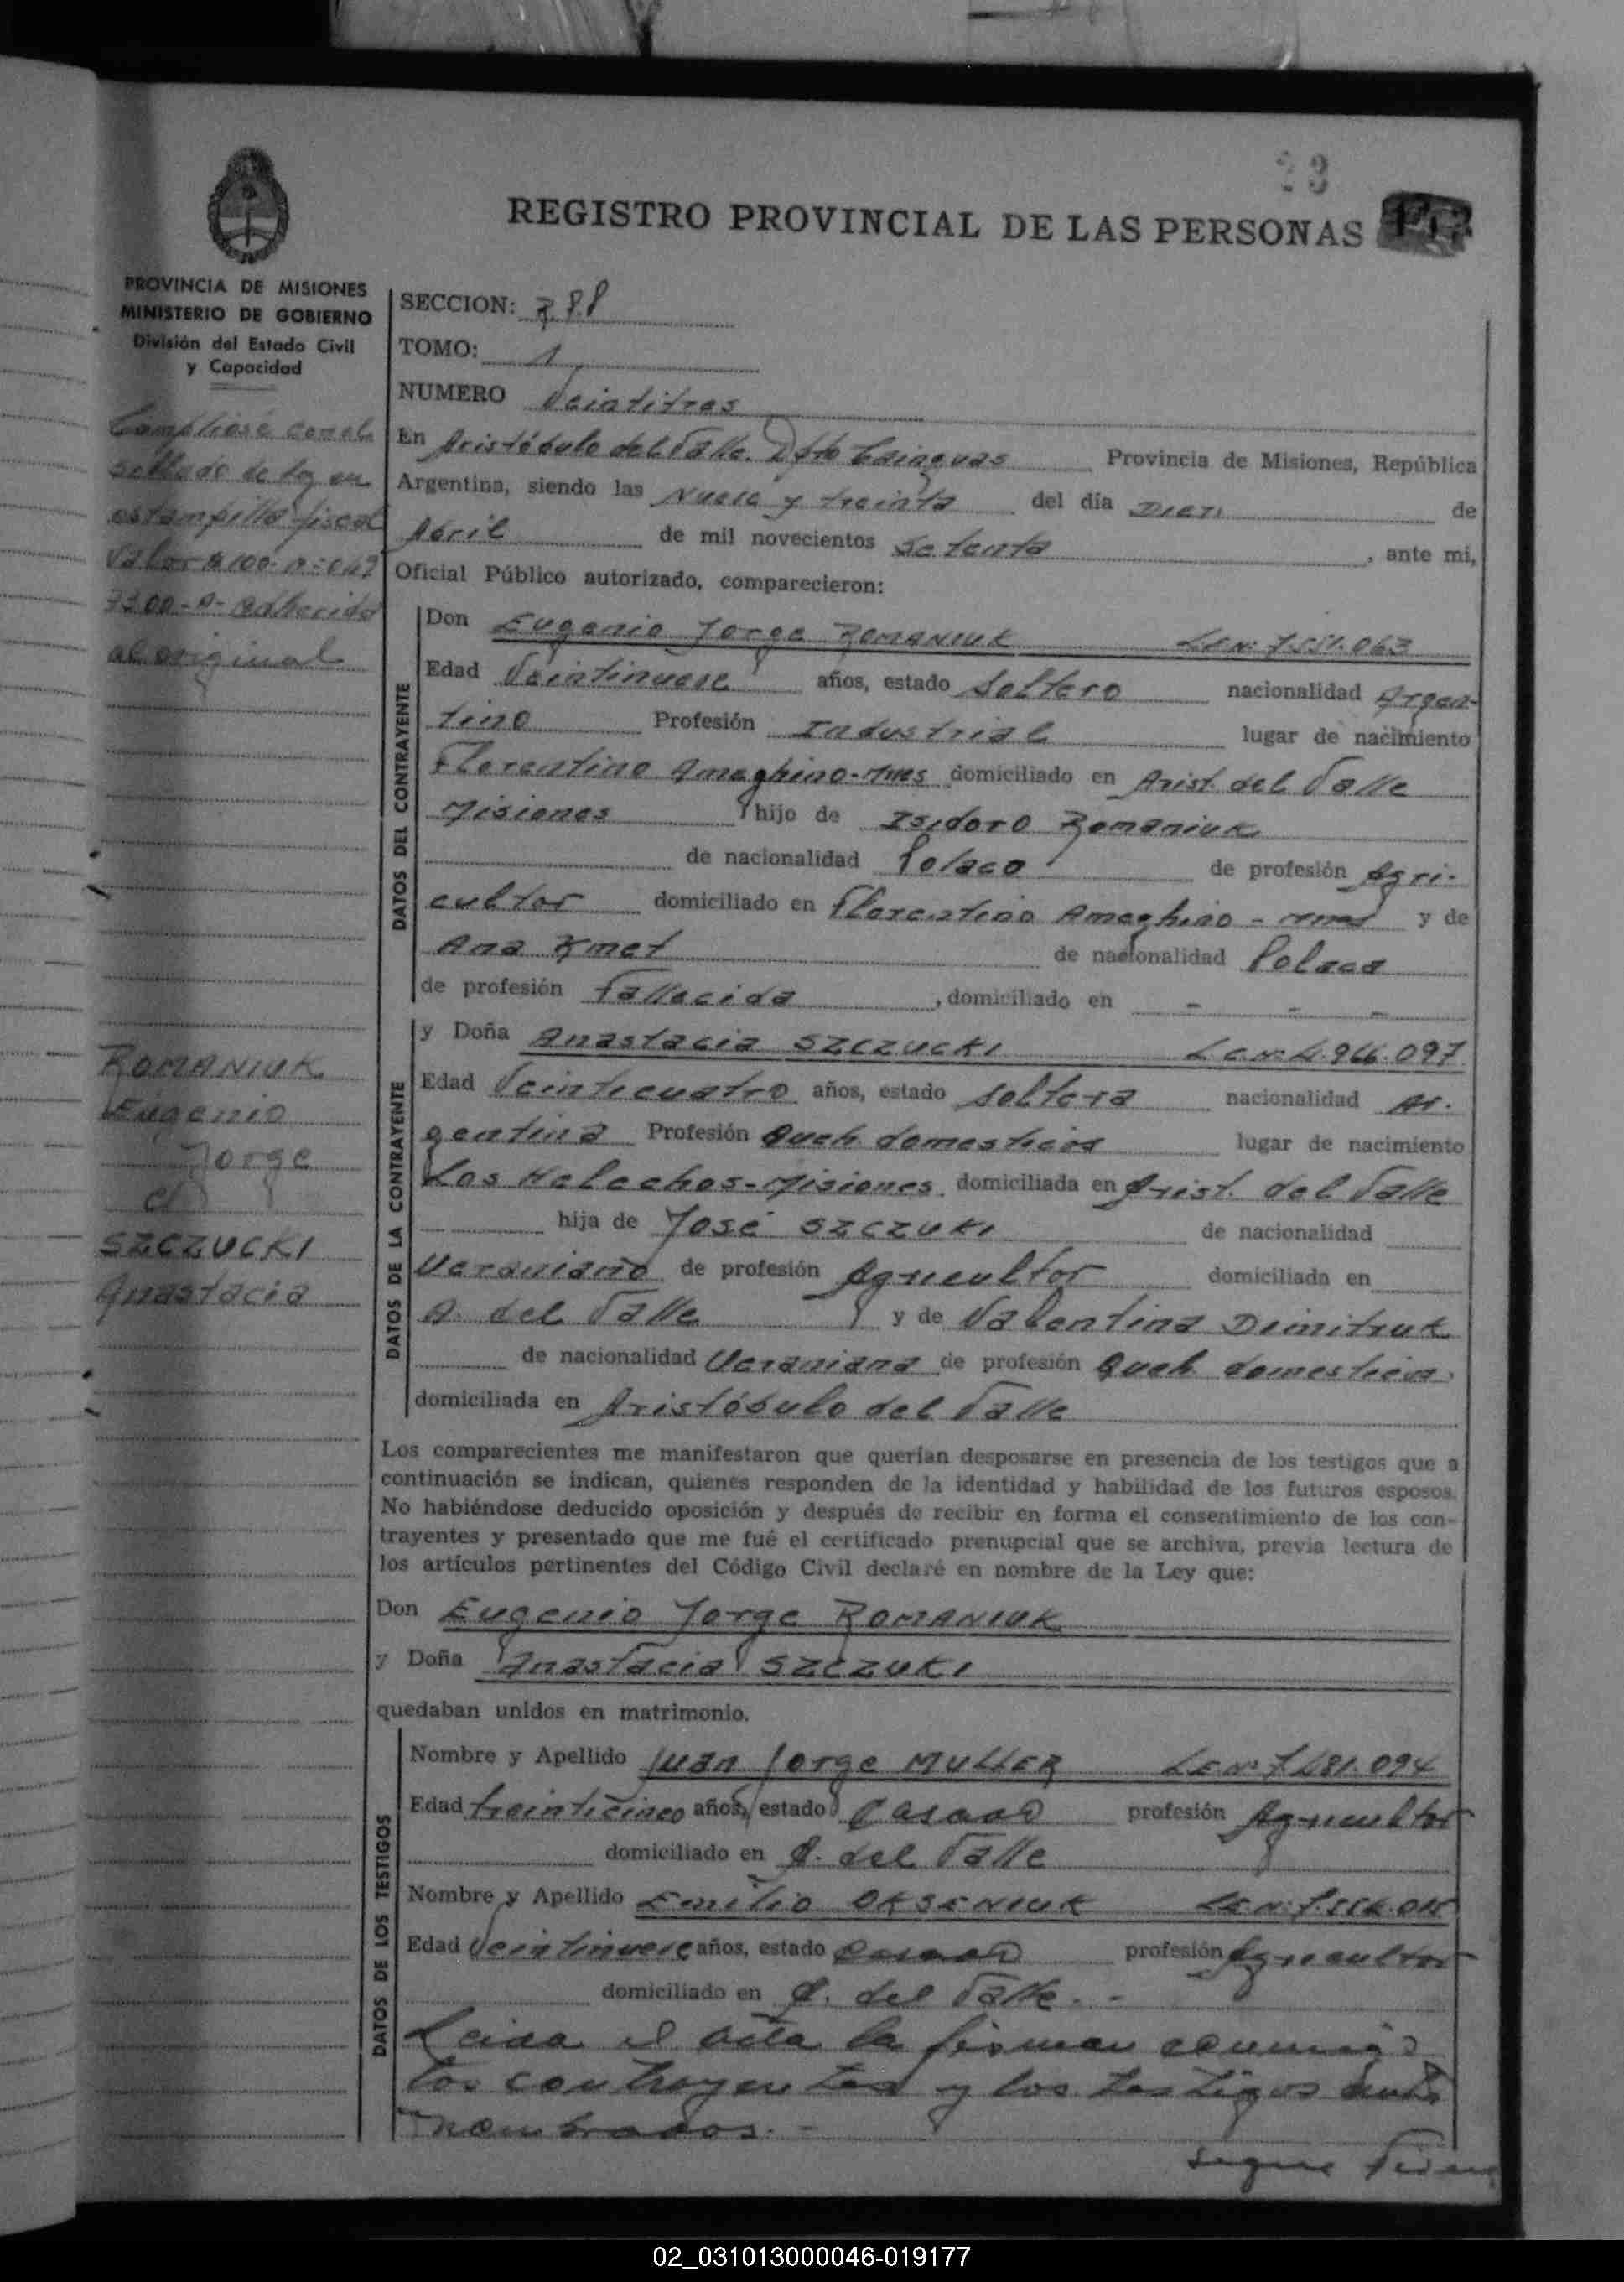 23
REGISTRO PROVINCIAL DE LAS PERSONAS
PROVINCIA DE MISIONES
MINISTERIO DE GOBIERNO
División del Estado Civil
y Capacidad
Cumpliose con el
sellado de ley en
estampilla fiscal
Valor $ 100
adherido
al original
ROMANIUK
Eugenio
Jorge
c/
SZCZUCKI
Anastacia
SECCION:
TOMO: 1
NUMERO Veintitres
En Aristóbulo del Valle. Dpto Cainguas Provincia de Misiones, República
Argentina, siendo las Nueve y treinta del día Diez de
Abril de mil novecientos Setenta, ante mi,
Oficial Público autorizado, comparecieron:
DATOS DEL CONTRAYENTE
Don Eugenio Jorge ROMANIUK L.E.Nº 7.551.063
Edad Veintinueve años, estado Soltero nacionalidad Argen-
tino Profesión Industrial lugar de nacimiento
Florentino Ameghino-Mnes domiciliado en Arist. del Valle
Misiones hijo de Isidoro Romaniuk
de nacionalidad Polaco de profesión Agri-
cultor domiciliado en Florentino Ameghino - Mnes y de
Ana Kmet de nacionalidad Polaca
de profesión fallecida, domiciliado en - - -
DATOS DE LA CONTRAYENTE
y Doña Anastacia SZCZUCKI L.C.Nº 4.966.097
Edad Veinticuatro años, estado Soltera nacionalidad Ar-
gentina Profesión Queh. domesticos lugar de nacimiento
Los Helechos-Misiones. domiciliada en Arist. del Valle
hija de José SZCZUKI de nacionalidad
Ucraniano de profesión Agricultor domiciliada en
A. del Valle y de Valentina Dimitruk
de nacionalidad Ucraniana de profesión Queh. domesticos
domiciliada en Aristóbulo del Valle
Los comparecientes me manifestaron que querían desposarse en presencia de los testigos que a
continuación se indican, quienes responden de la identidad y habilidad de los futuros esposos.
No habiéndose deducido oposición y después de recibir en forma el consentimiento de los con-
trayentes y presentado que me fué el certificado prenupcial que se archiva, previa lectura de
los artículos pertinentes del Código Civil declaré en nombre de la Ley que:
Don Eugenio Jorge ROMANIUK
y Doña Anastacia SZCZUKI
quedaban unidos en matrimonio.
DATOS DE LOS TESTIGOS
Nombre y Apellido Juan Jorge MULLER L.E.Nº 7.481.094
Edad treinticinco años, estado Casado profesión Agricultor
domiciliado en A. del Valle
Nombre y Apellido Emilio OKSENIUK L.E.Nº
Edad Veintinueve años, estado Casado profesión Agricultor
domiciliado en A. del Valle. -
Leida el acta la firman conmigo
los contrayentes y los testigos ante
nombrados. -
Sigue
02_031013000046-019177